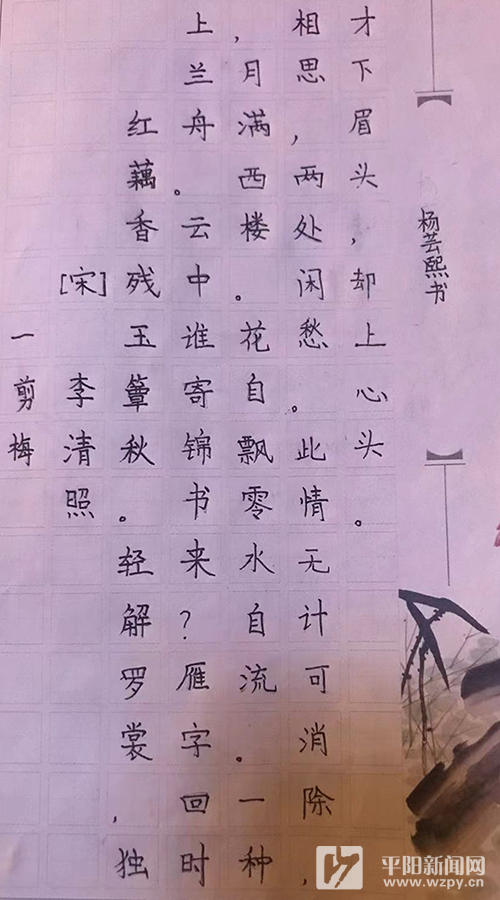 一剪梅
[宋] 李清照
红藕香残玉簟秋。轻解罗裳，独
上兰舟。云中谁寄锦书来？雁字回时
，月满西楼。花自飘零水自流。一种
相思，两处闲愁。此情无计可消除，
才下眉头，却上心头。
杨芸熙书
平阳新闻网
www.wzpy.cn